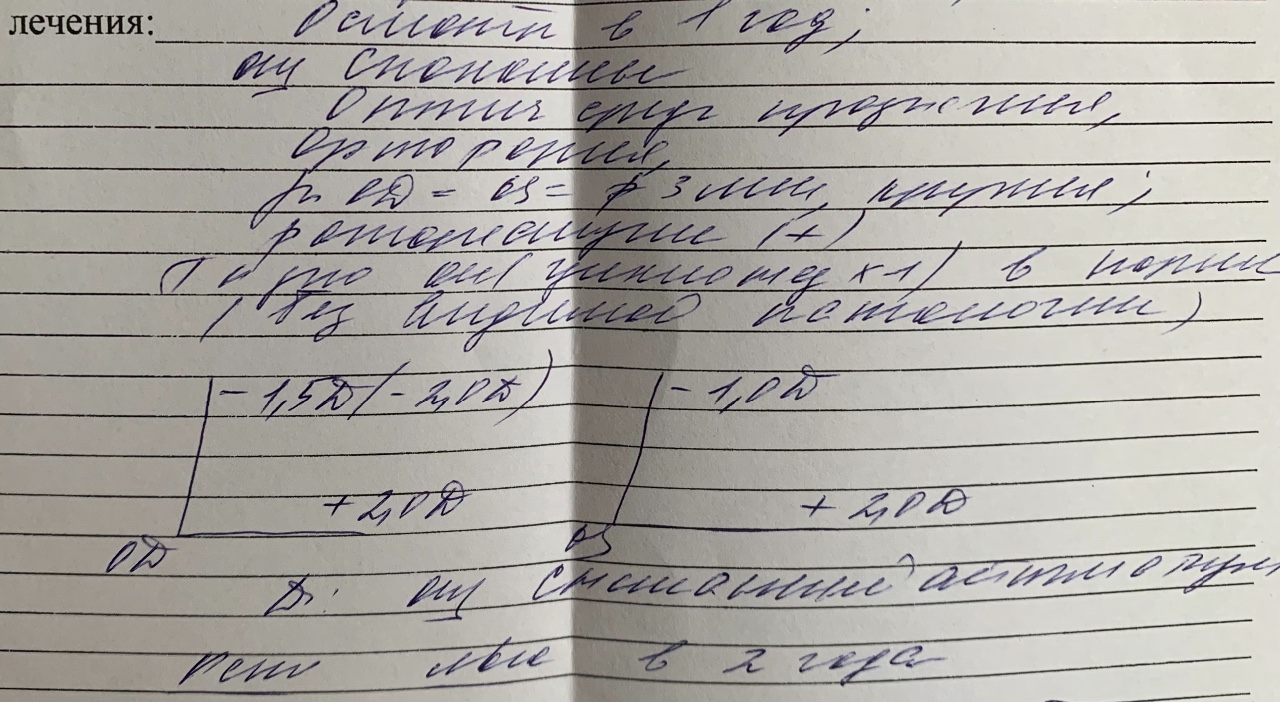 лечения: Осмотр в 1 год;
оц спокойны
Оптич среды прозрачные,
Ортофория,
OD = OS = 3 мм, круглые;
фотореакция (+)
Гл дно ou (циклomeд x 1) в норме
(без видимой патологии)
- 1,5D (- 2,0D) - 1,0D
+ 2,0D + 2,0D
OD OS
D: оц Смешанный астигматизм
в 2 года